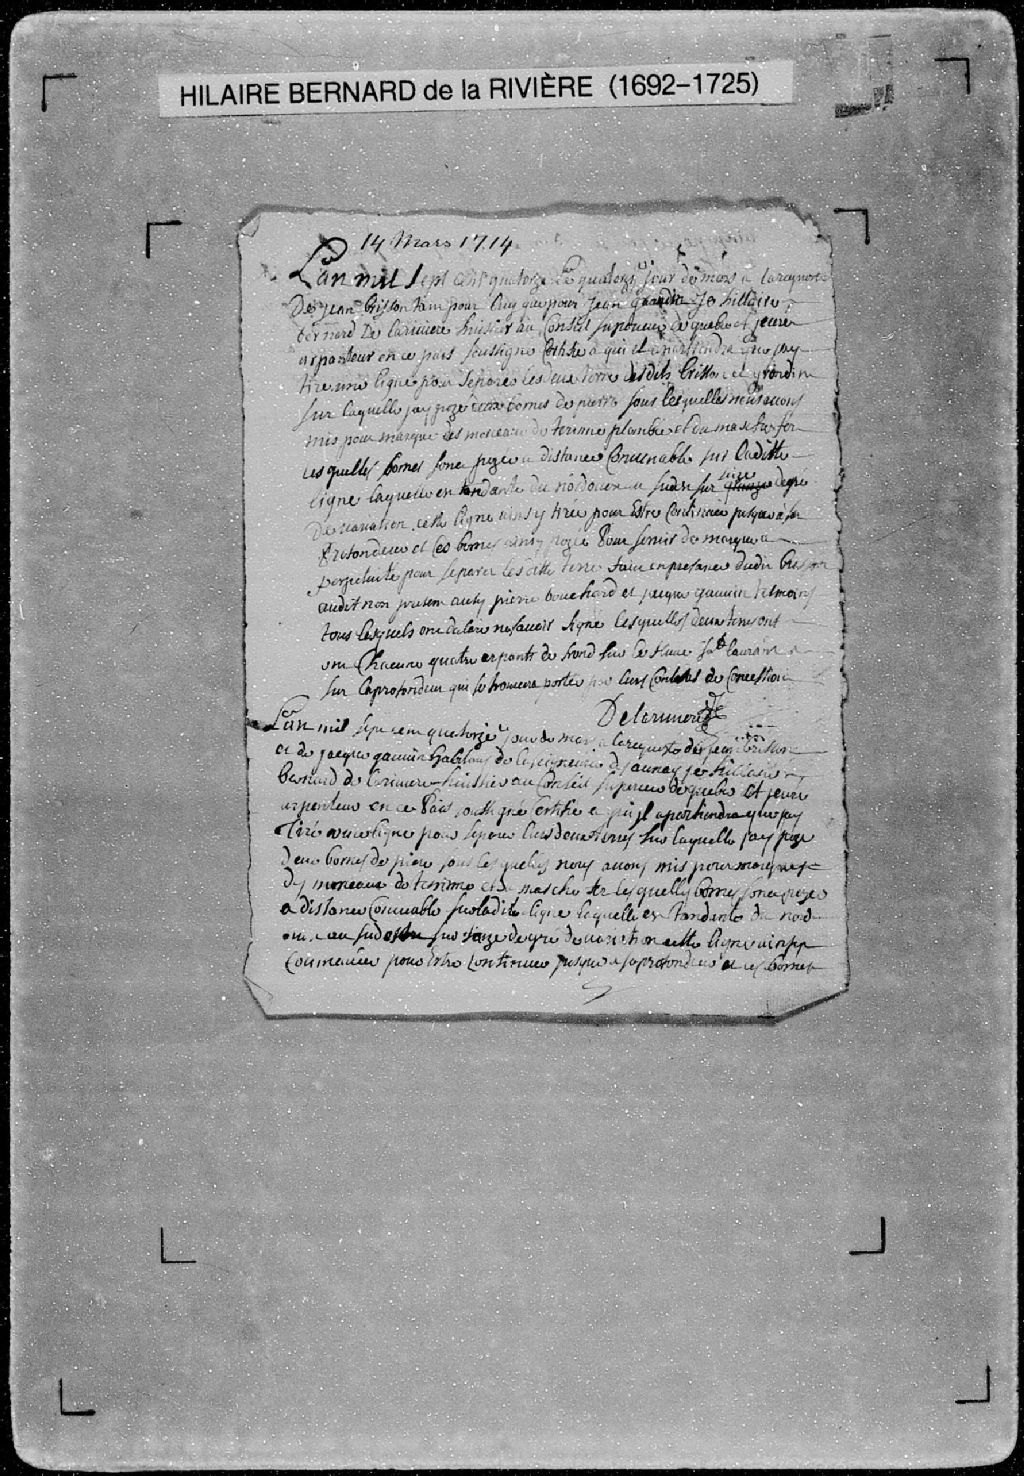 HILAIRE BERNARD de la RIVIÈRE (1692–1725)
14 Mars 1714
L'an mil sept cent quatorze Le quatorze jour de mars a la requeste
De jean brisson tam pour luy que pour jean Je hillaire
bernard De lariviere huissier au Conseil superieur de quebec et jeure
arpanteur en ce pais soussigne Certifie a qui il apartiendra que jay
tire une ligne pour separer les deux terre desdits brisson et
sur laquelle jay pozé deux bornes de pierre sous lesquelles nous avons
mis pour marque des morceaux de terinne planbée et du machefer
lesquelles bornes sont pozee a distance Convenable sur laditte
ligne laquelle en tandante du nordouen au sudest sur saize degre
De variation cette ligne ainsy tiree pour Estre Continuee jusque a sa
profondeur et les bornes ainsy pozee Pour servir de marque a
perpetuite pour separer les ditte terre faite en presance dudit brisson
audit non presens pierre bouchard et jacque gauvin temoins
tous lesquels ont declaré ne savoir signe lesquelles deux terre ont
Chacune quatre arpants de frond sur le fleuve st laurans
sur la profondeur qui se trouvera portée par leurs Contrats de Concession
Delariviere
L'an mil sept cent quatorze jour de mars a la requeste de jean brisson
et de jacque gauvin habitans de la seigneurie Je hillaire
bernard de lariviere huissier au Conseil superieur de quebec Et jeure
arpenteur en ce Pais soussigné Certifie a qui il apartiendra que jay
Tiré une ligne pour separer leurs deux terres sur laquelle jay poze
deux bornes de piere sous lesquelles nous avons mis pour marque
des morceaux de terinne et de machefer lesquelles bornes sont pozee
a distance Convenable sur ladite ligne laquelle es tandante du nord
au sudest sur saize degré de variation cette ligne ainsy
Commancée pour estre continuee jusque a sa profondeur et les bornes